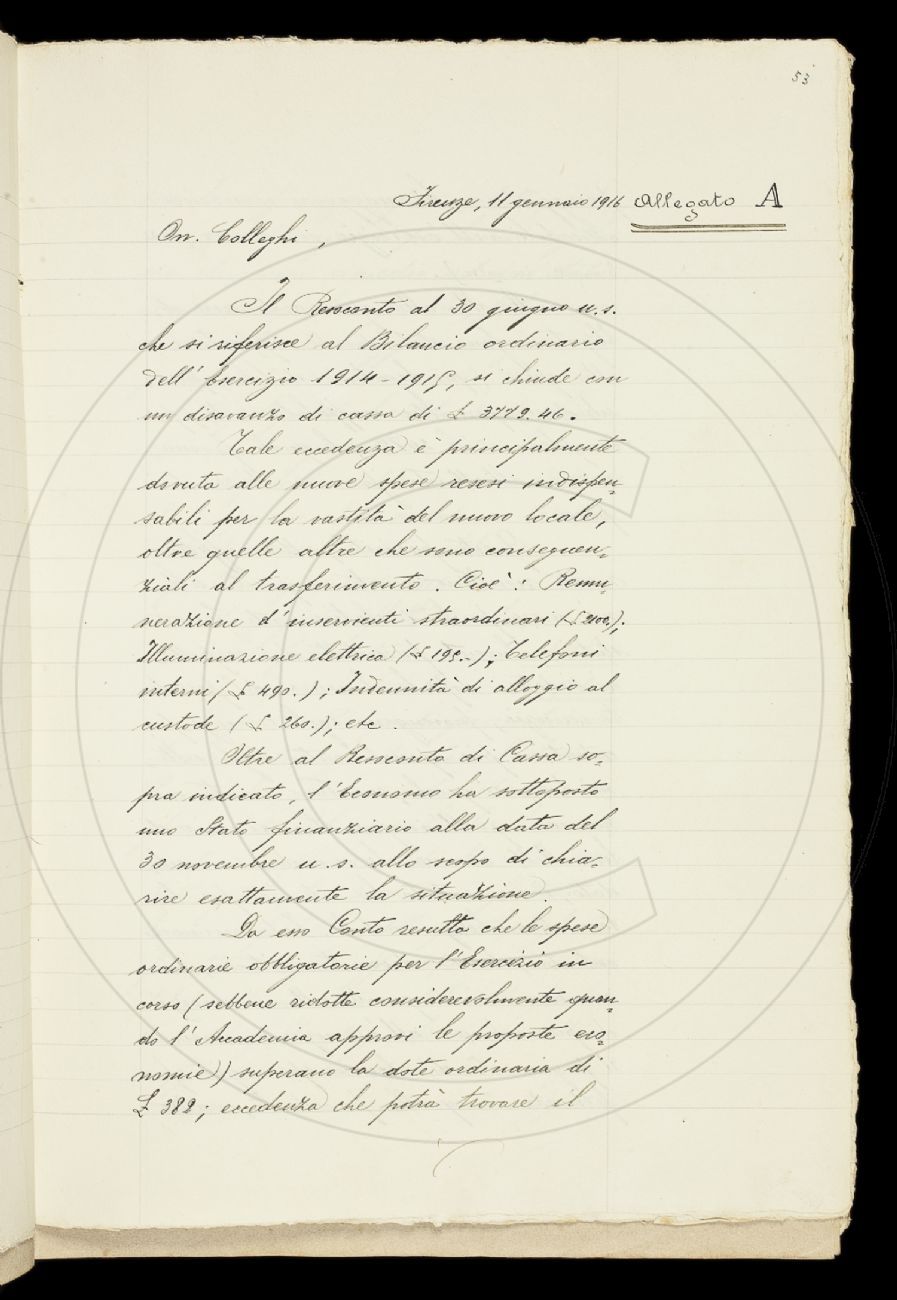 53
Firenze, 11 gennaio 1916 Allegato A
On. Colleghi,
Il Resoconto al 30 giugno u.s.
che si riferisce al Bilancio ordinario
dell'Esercizio 1914-1915, si chiude con
un disavanzo di cassa di £ 3779.46.
Tale eccedenza è principalmente
dovuta alle nuove spese resesi indispen=
sabili per la vastità del nuovo locale,
oltre quelle altre che sono conseguen=
ziali al trasferimento. Cioè: Remu=
nerazione d'inservienti straordinari (£ 200.);
Illuminazione elettrica (£ 195.-); Telefoni
interni (£ 490.); Indennità di alloggio al
custode (£ 260.); etc.
Oltre al Resoconto di Cassa so=
pra indicato, l'Economo ha sottoposto
uno Stato finanziario alla data del
30 novembre u.s. allo scopo di chia=
rire esattamente la situazione.
Da esso Conto resulta che le spese
ordinarie obbligatorie per l'Esercizio in
corso (sebbene ridotte considerevolmente quan=
do l'Accademia approvi le proposte eco=
nomie) superano la dote ordinaria di
£ 382; eccedenza che potrà trovare il